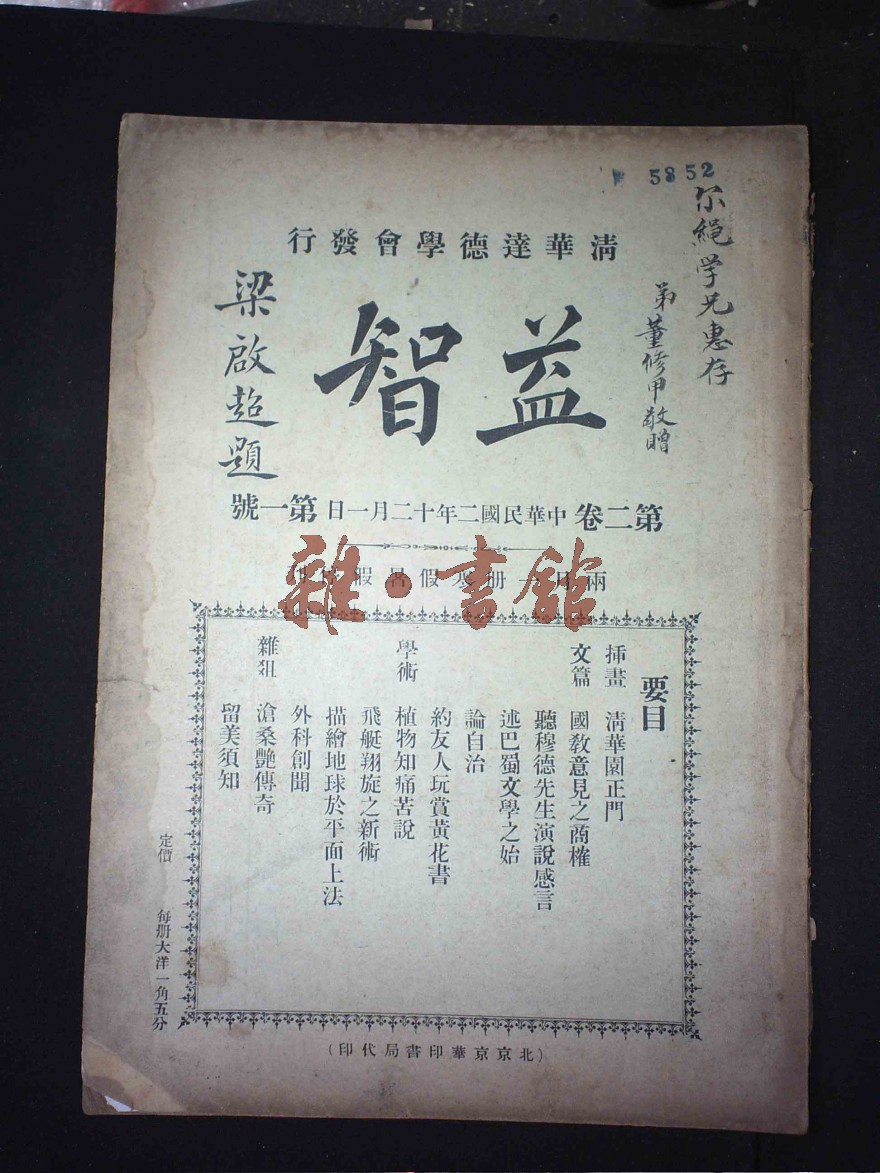 5852
尔繩学兄惠存
弟董修甲敬贈
清華達德學會發行
益智
梁啟超題
第二卷 中華民國二年十二月一日 第一號
兩月一册寒假暑假停
雜·書館
要目
插畫 清華園正門
文篇 國教意見之商榷
聽穆德先生演說感言
述巴蜀文學之始
論自治
約友人玩賞黃花書
學術 植物知痛苦說
飛艇翔旋之新術
描繪地球於平面上法
外科創聞
雜俎 滄桑艷傳奇
留美須知
定價 每册大洋一角五分
(北京京華印書局代印)